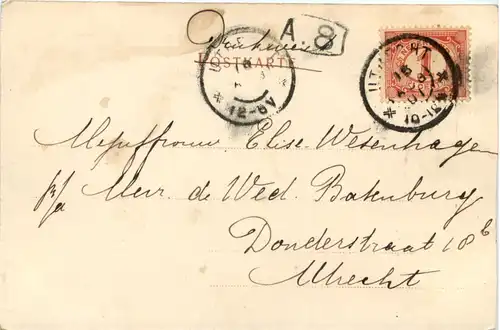 A 8
POSTKARTE
UTRECHT
12-8V
10-11V
Mejuffrouw Elise Wesenhagen
p/a Mevr. de Wed. Batenburg
Donderstraat 18b
Utrecht